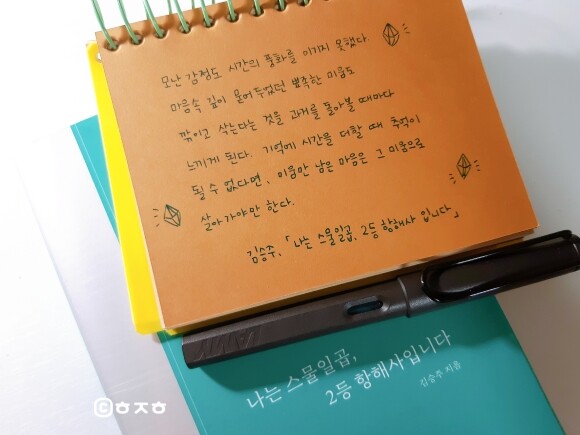 모난 감정도 시간의 풍화를 이기지 못했다.
마음속 깊이 묻어두었던 뾰족한 미움도
깎이고 삭는다는 것을 과거를 돌아볼 때마다
느끼게 된다. 기억에 시간을 더할 때 추억이
될 수 없다면, 미움만 남은 마음은 그 미움으로
살아가야만 한다.
김승주, 「나는 스물일곱, 2등 항해사 입니다」
나는 스물일곱,
2등 항해사입니다
김승주 지음
ⓒㅎㅈㅎ